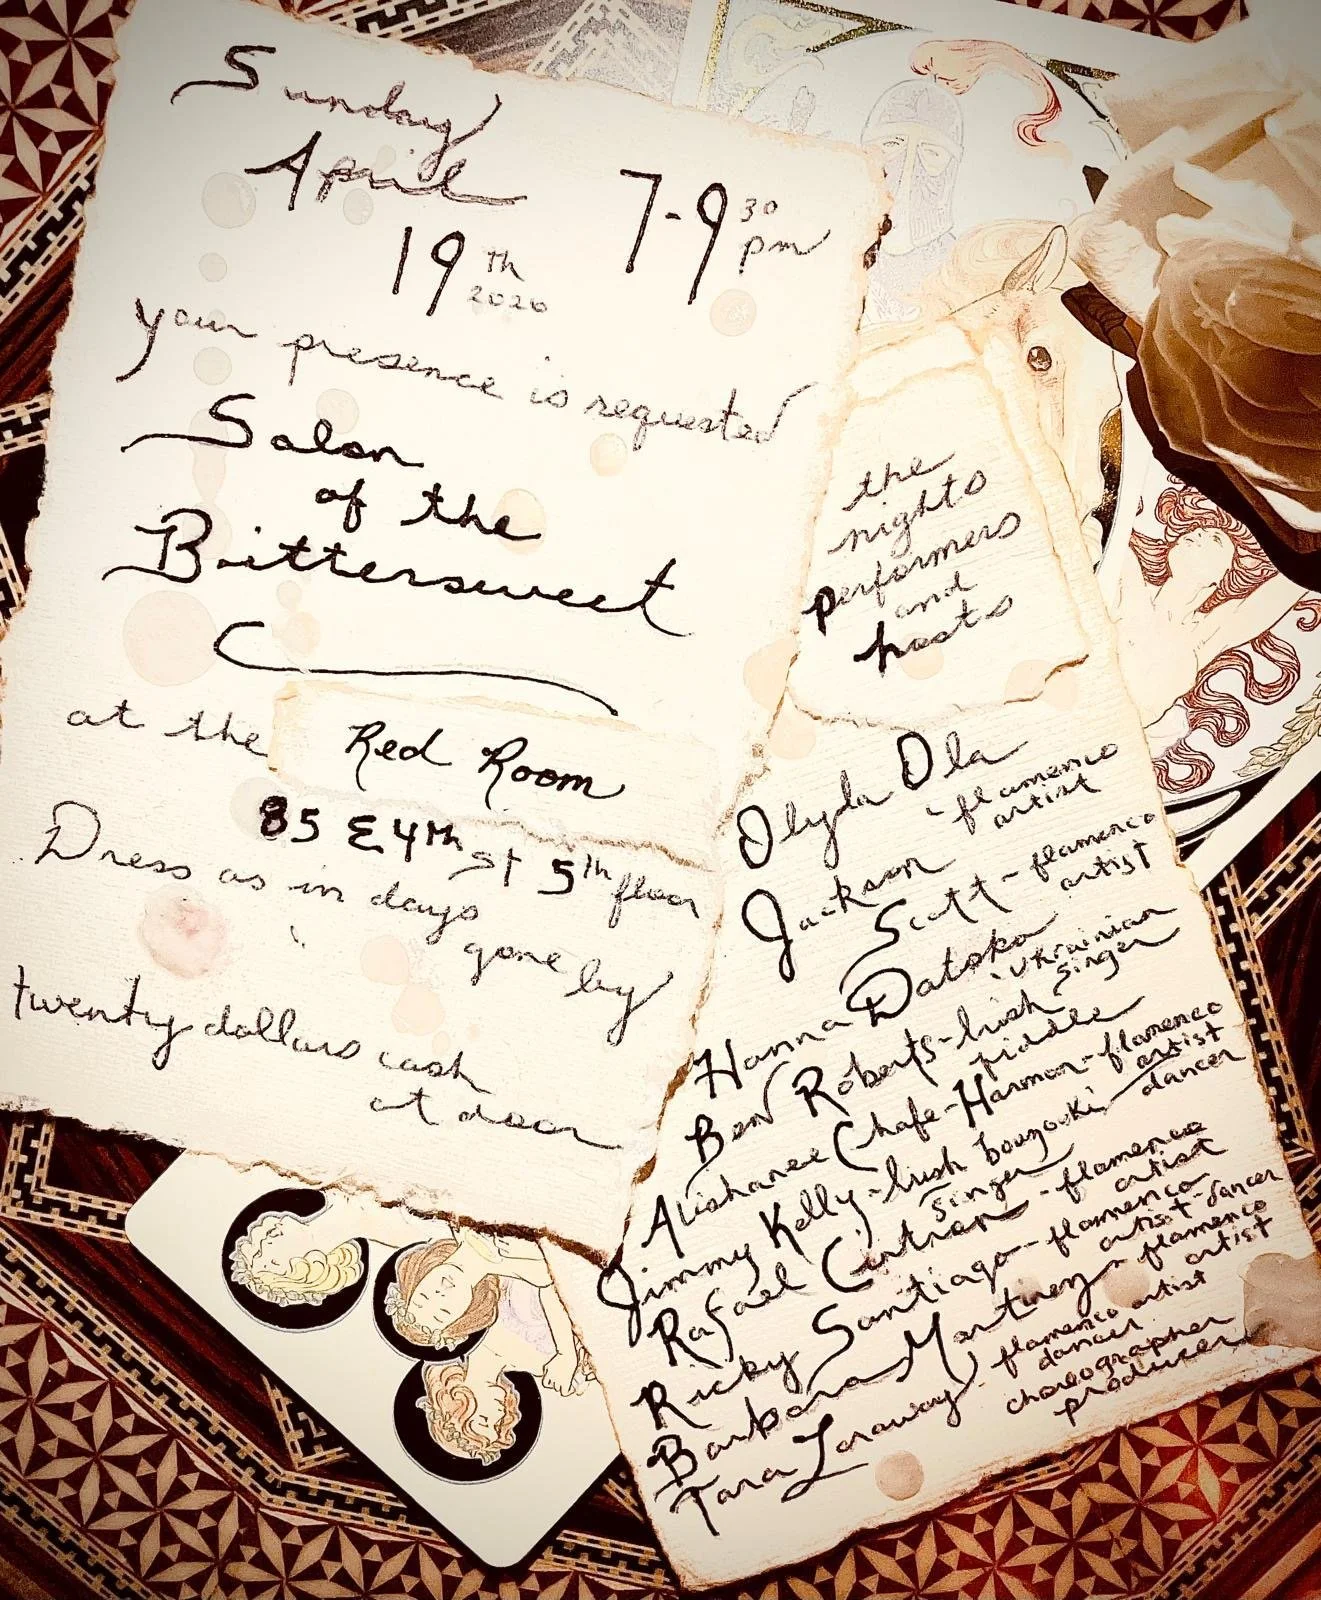 Sunday
April
19th
2026
7-9 30
pm
your presence is requested
Salon
of the
Bittersweet
at the Red Room
85 E 4th st 5th floor
Dress as in days
gone by
twenty dollars cash
at door
the
nights
performers
and
hosts
Olyda Ola
- flamenco
artist
Jackson
Scott - flamenco
artist
Hanna Datska
- Ukrainian
singer
Ben Roberts - Irish
fiddle
Alishanee Chafe-Harmon - flamenco
artist
dancer
Jimmy Kelly - Irish bouzouki
singer
Rafael Cintron - flamenco
artist
Ricky Santiago - flamenco
artist - dancer
Barbara Martinez - flamenco
artist
Tara Laraway - flamenco artist
dancer
choreographer
producer